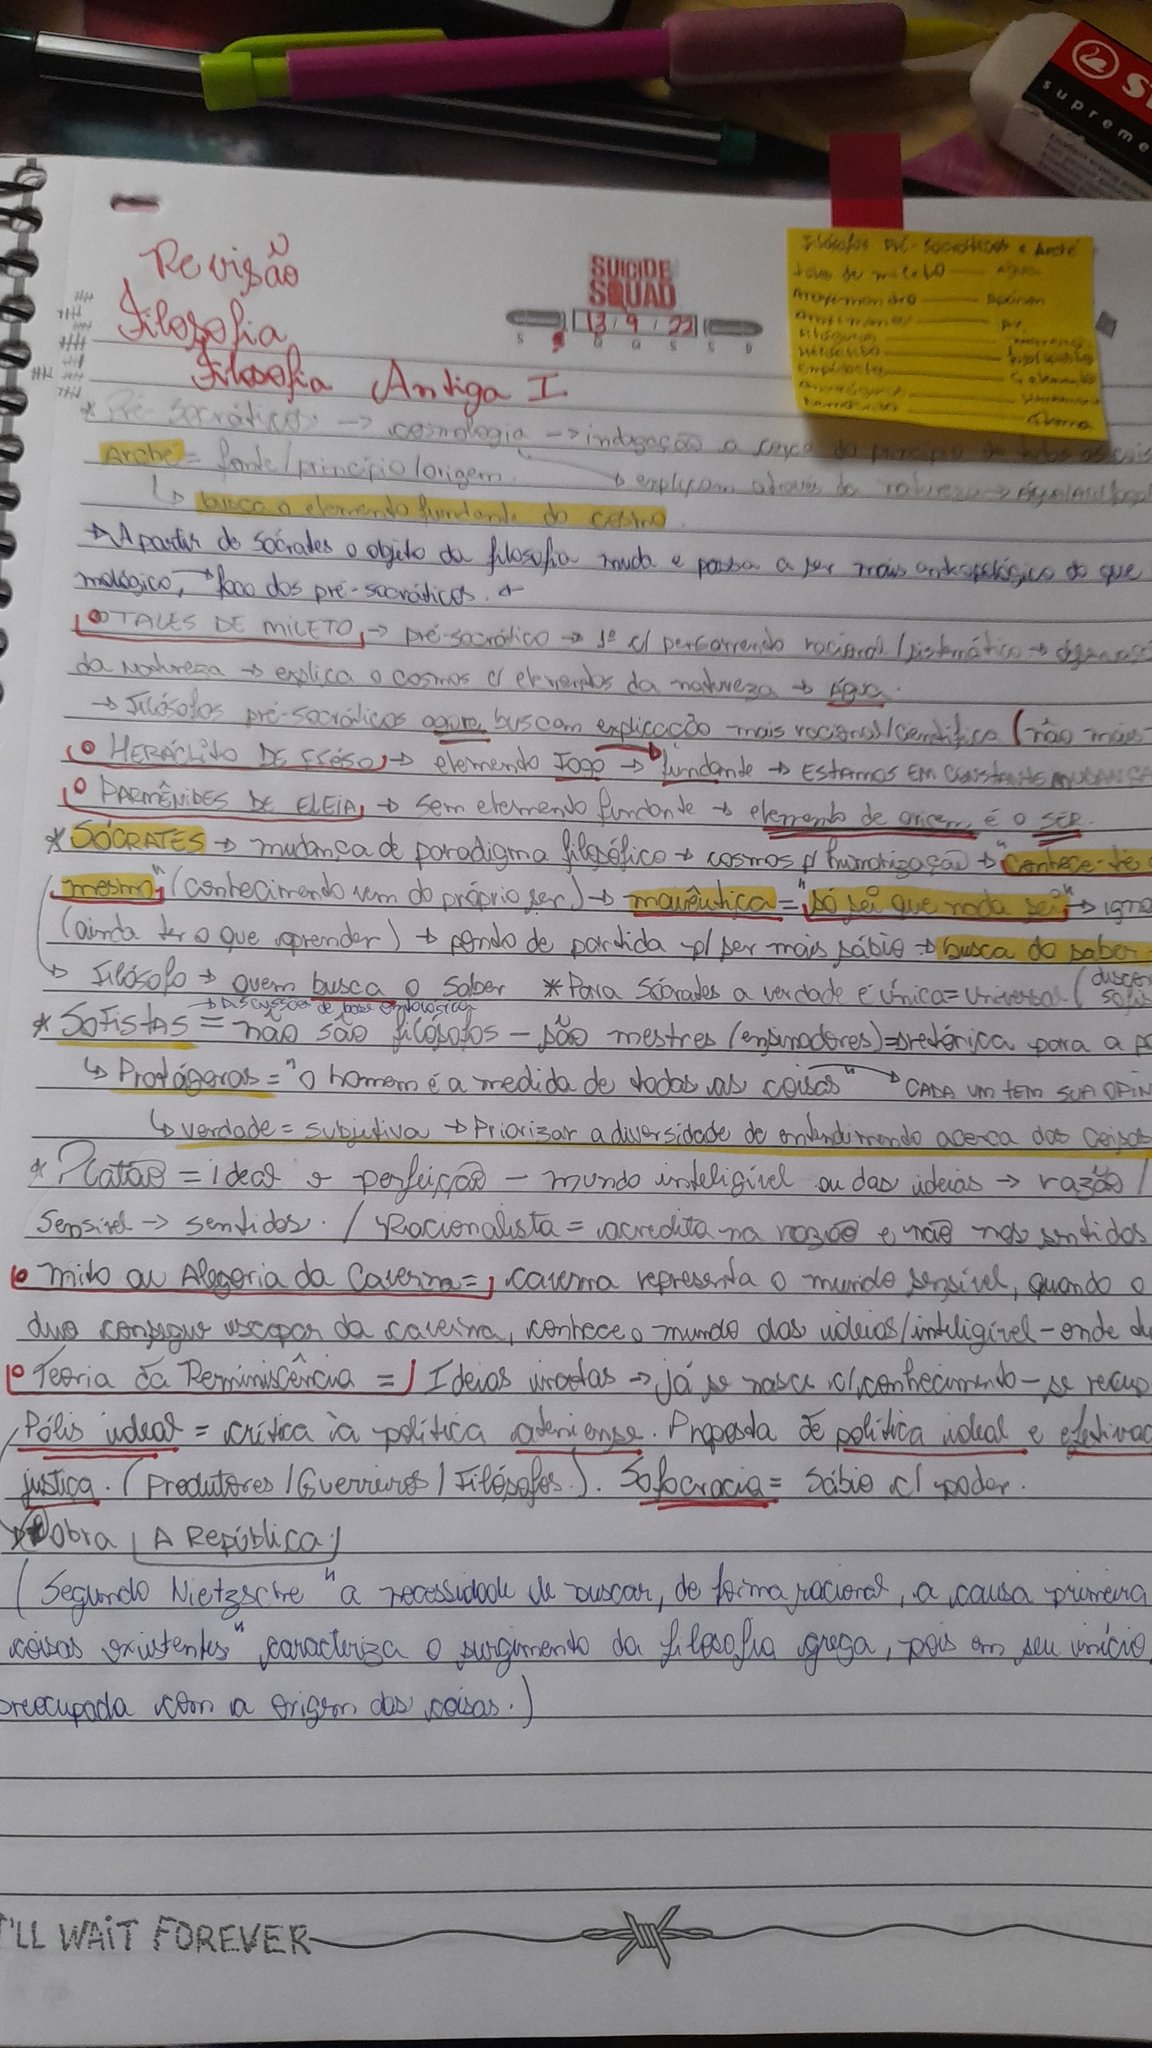 Revisão
Filosofia
Filosofia Antiga I
SUICIDE
SQUAD
13 / 9 / 22
S Q U A S S D
ST
supreme
Filósofos Pré-Socráticos e Arché
Tales de mileto — Água
Anaximandro — Apeiron
Anaxímenes — Ar
Pitágoras —
Heráclito —
Empédocles —
* Pré-Socráticos → cosmologia → indagação a cerca do princípio de todas as cois
Arché = fonte/princípio/origem. → explicam através da natureza →
↳ busca o elemento fundante do cosmo.
→ A partir de Sócrates o objeto da filosofia muda e passa a ser mais antropológico do que
mológico, → foco dos pré-socráticos.
TALES DE MILETO → pré-socrático → 1º c/ percorrendo racional/sistemático →
da natureza → explica o cosmos c/ elementos da natureza → água.
→ Filósofos pré-socráticos agora buscam explicação mais racional/científica (não mais
HERÁCLITO DE EFÉSO → elemento fogo → fundante → ESTAMOS EM CONSTANTE MUDANÇA
PARMÊNIDES DE ELEIA → sem elemento fundante → elemento de origem é o SER.
* SÓCRATES → mudança de paradigma filosófico → cosmos p/ humanização → "conhece-te
mesmo" (conhecimento vem do próprio ser) → maiêutica = "só sei que nada sei" → igno
(ainda ter o que aprender) → ponto de partida p/ ser mais sábio → busca do saber
→ Filósofo → quem busca o saber * Para Sócrates a verdade é única = universal (
→ DISCUSSÕES de base
* SOFISTAS = não são filósofos - são mestres (ensinadores) = retórica para a po
↳ Protágoras = "o homem é a medida de todas as coisas" → CADA UM TEM SUA OPIN
↳ verdade = subjetiva → Priorizar a diversidade de entendimento acerca das coisas
* Platão = ideal e perfeição - mundo inteligível ou das ideias → razão /
Sensível → sentidos. / Racionalista = acredita na razão e não nos sentidos
mito ou Alegoria da Caverna = caverna representa o mundo sensível, quando o
duo consegue escapar da caverna, conhece o mundo das ideias/inteligível - onde
Teoria da Reminiscência = Ideias inatas → já se nasce c/ conhecimento - se recup
Pólis ideal = crítica à política ateniense. Proposta de política ideal e efetivac
justiça. (Produtores / Guerreiros / Filósofos). Sofocracia = Sábio c/ poder.
Obra A República
(Segundo Nietzsche "a necessidade de buscar, de forma racional, a causa primeira
coisas existentes" caracteriza o surgimento da filosofia grega, pois em seu início,
preocupada com a origem das coisas.)
I'LL WAIT FOREVER